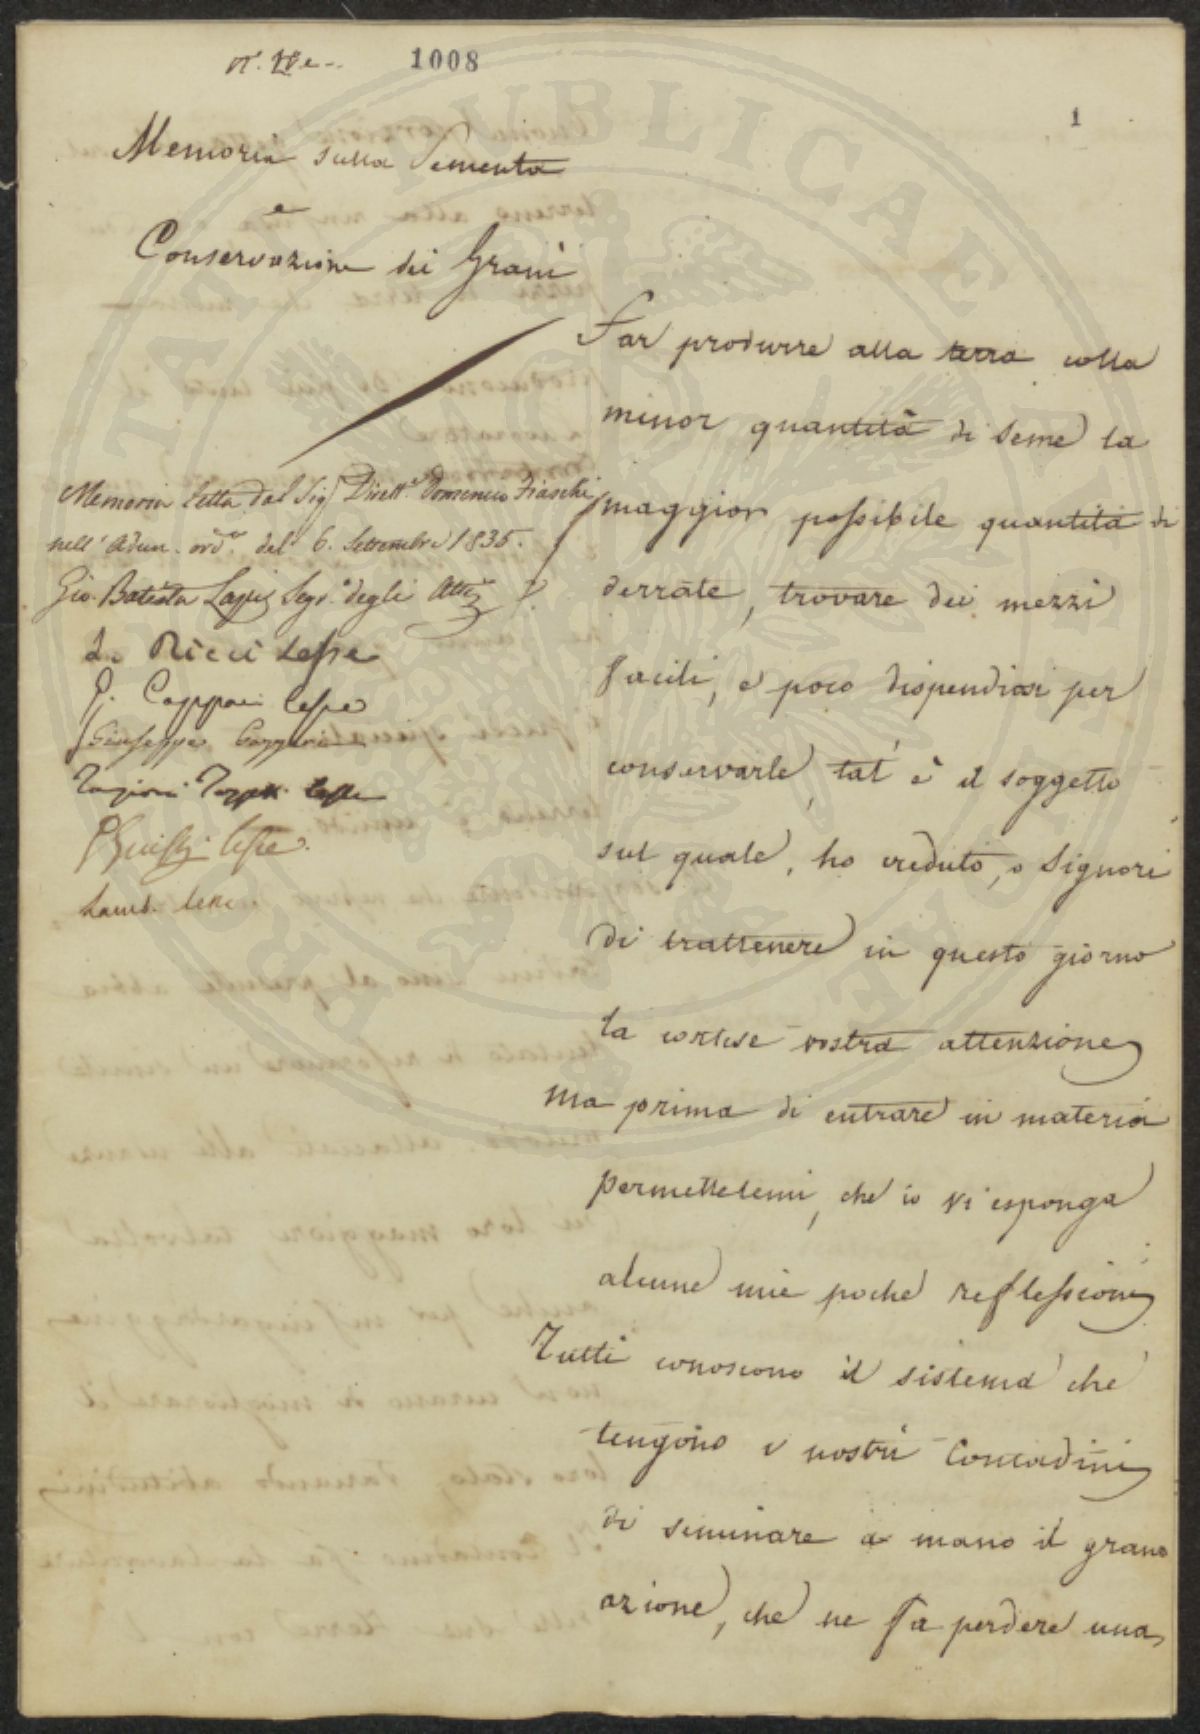 1008
1
Memoria sulla Sementa
e
Conservazione dei Grani
Memoria letta dal Sig. Dirett.e Domenico Fiaschi
nell' Adun. ord.a del 6. Settembre 1835.
Gio. Batista Lapi Segr.o degli Atti
L. Ricci lesse
G. Cappari lesse
Giuseppe
lesse
lesse.
Lamb.
Far produrre alla terra colla
minor quantità di seme la
maggior possibile quantità di
derrate, trovare dei mezzi
facili, e poco dispendiosi per
conservarle, tal' è il soggetto
sul quale, ho creduto, o Signori
di trattenere in questo giorno
la cortese vostra attenzione
ma prima di entrare in materia
permettetemi, che io vi esponga
alcune mie poche reflessioni
Tutti conoscono il sistema che
tengono i nostri Contadini
di seminare a mano il grano
azione, che ne fa perdere una